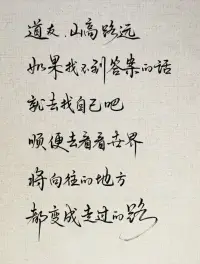 道友.山高路远
如果找不到答案的话
就去找自己吧
顺便去看看世界
将向往的地方
都变成走过的路